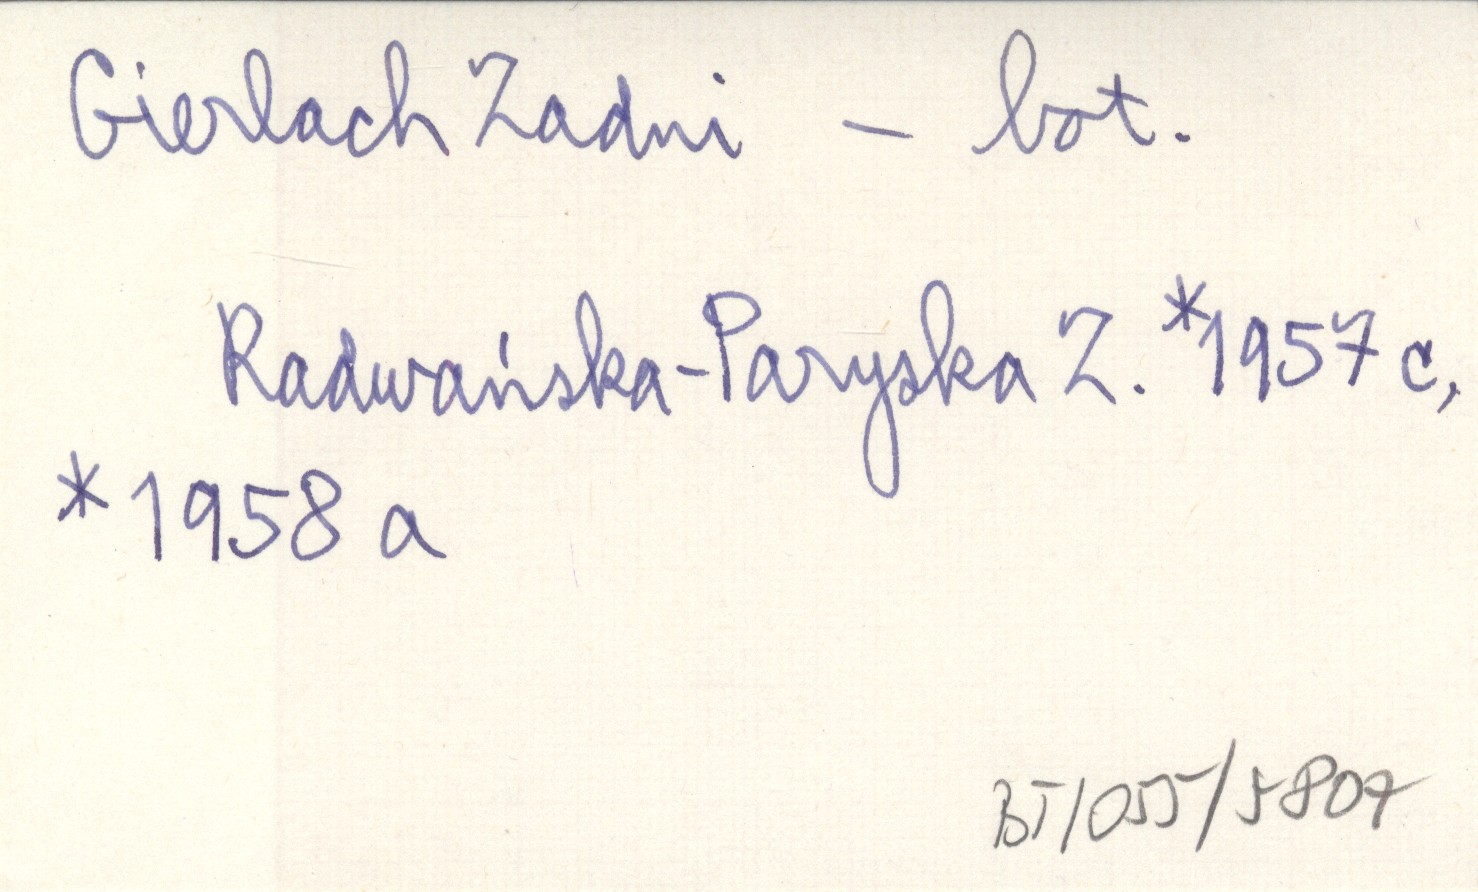 Gierlach Zadni – bot.
Radwańska-Paryska Z. *1957 c,
*1958 a
BT/055/5807